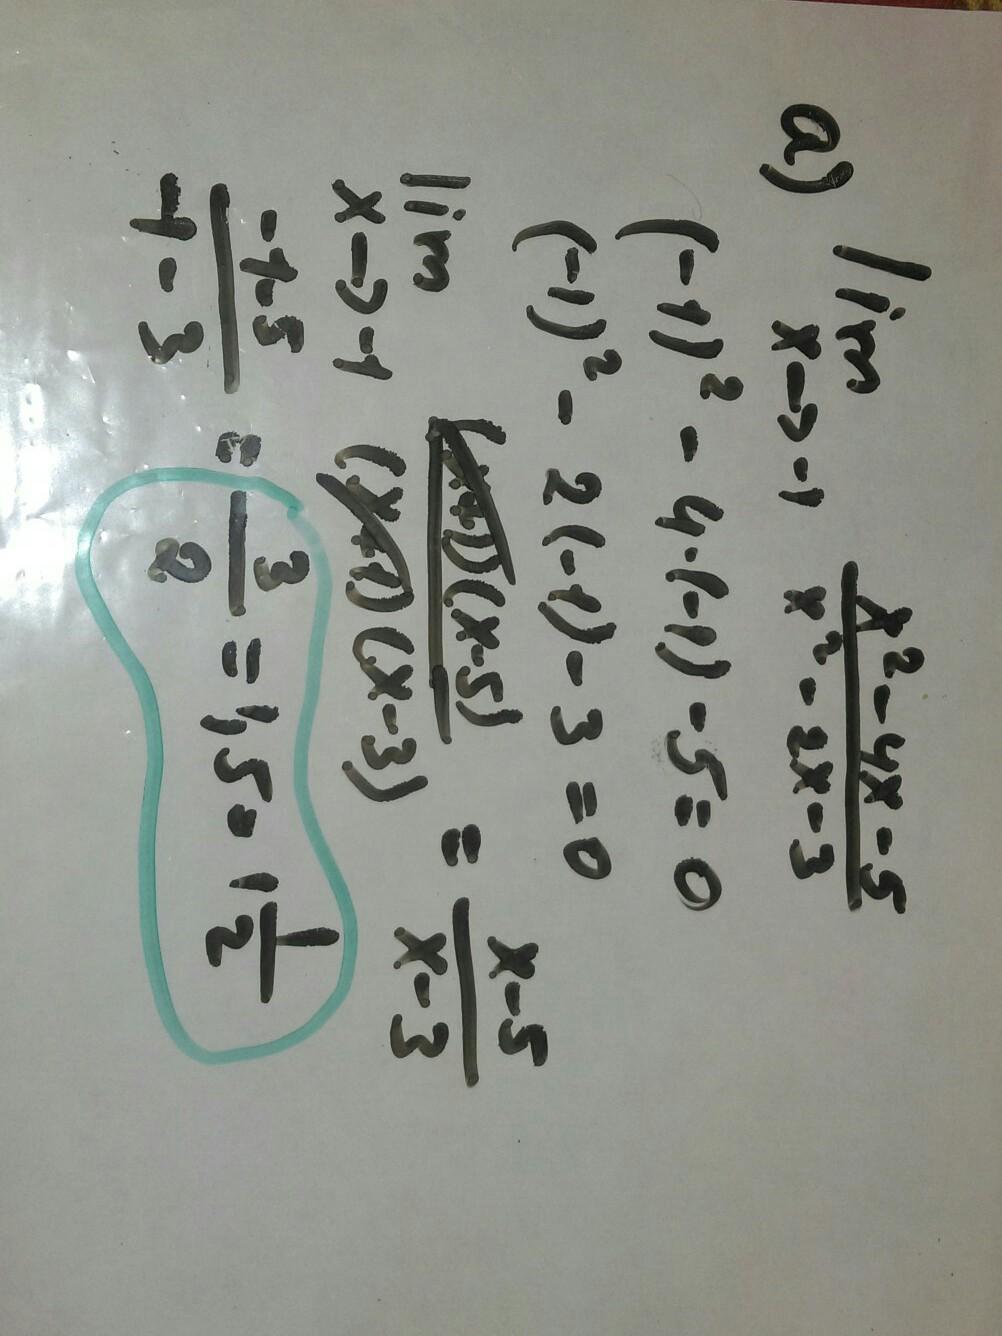 a) lim x→-1 x²-4x-5 / x²-2x-3
(-1)² - 4·(-1) - 5 = 0
(-1)² - 2(-1) - 3 = 0
lim x→-1 (x+1)(x-5) / (x+1)(x-3) = x-5 / x-3
-1-5 / -1-3 = 3/2 = 1,5 = 1 1/2